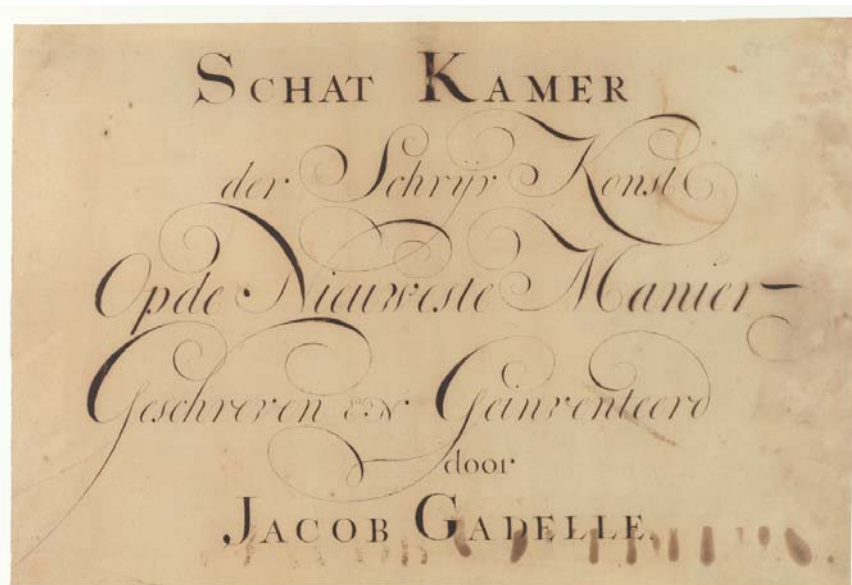 SCHAT KAMER
der Schryv Konst
Op de Nieuweste Manier
Geschreven EN Geinventeerd
door
JACOB GADELLE.